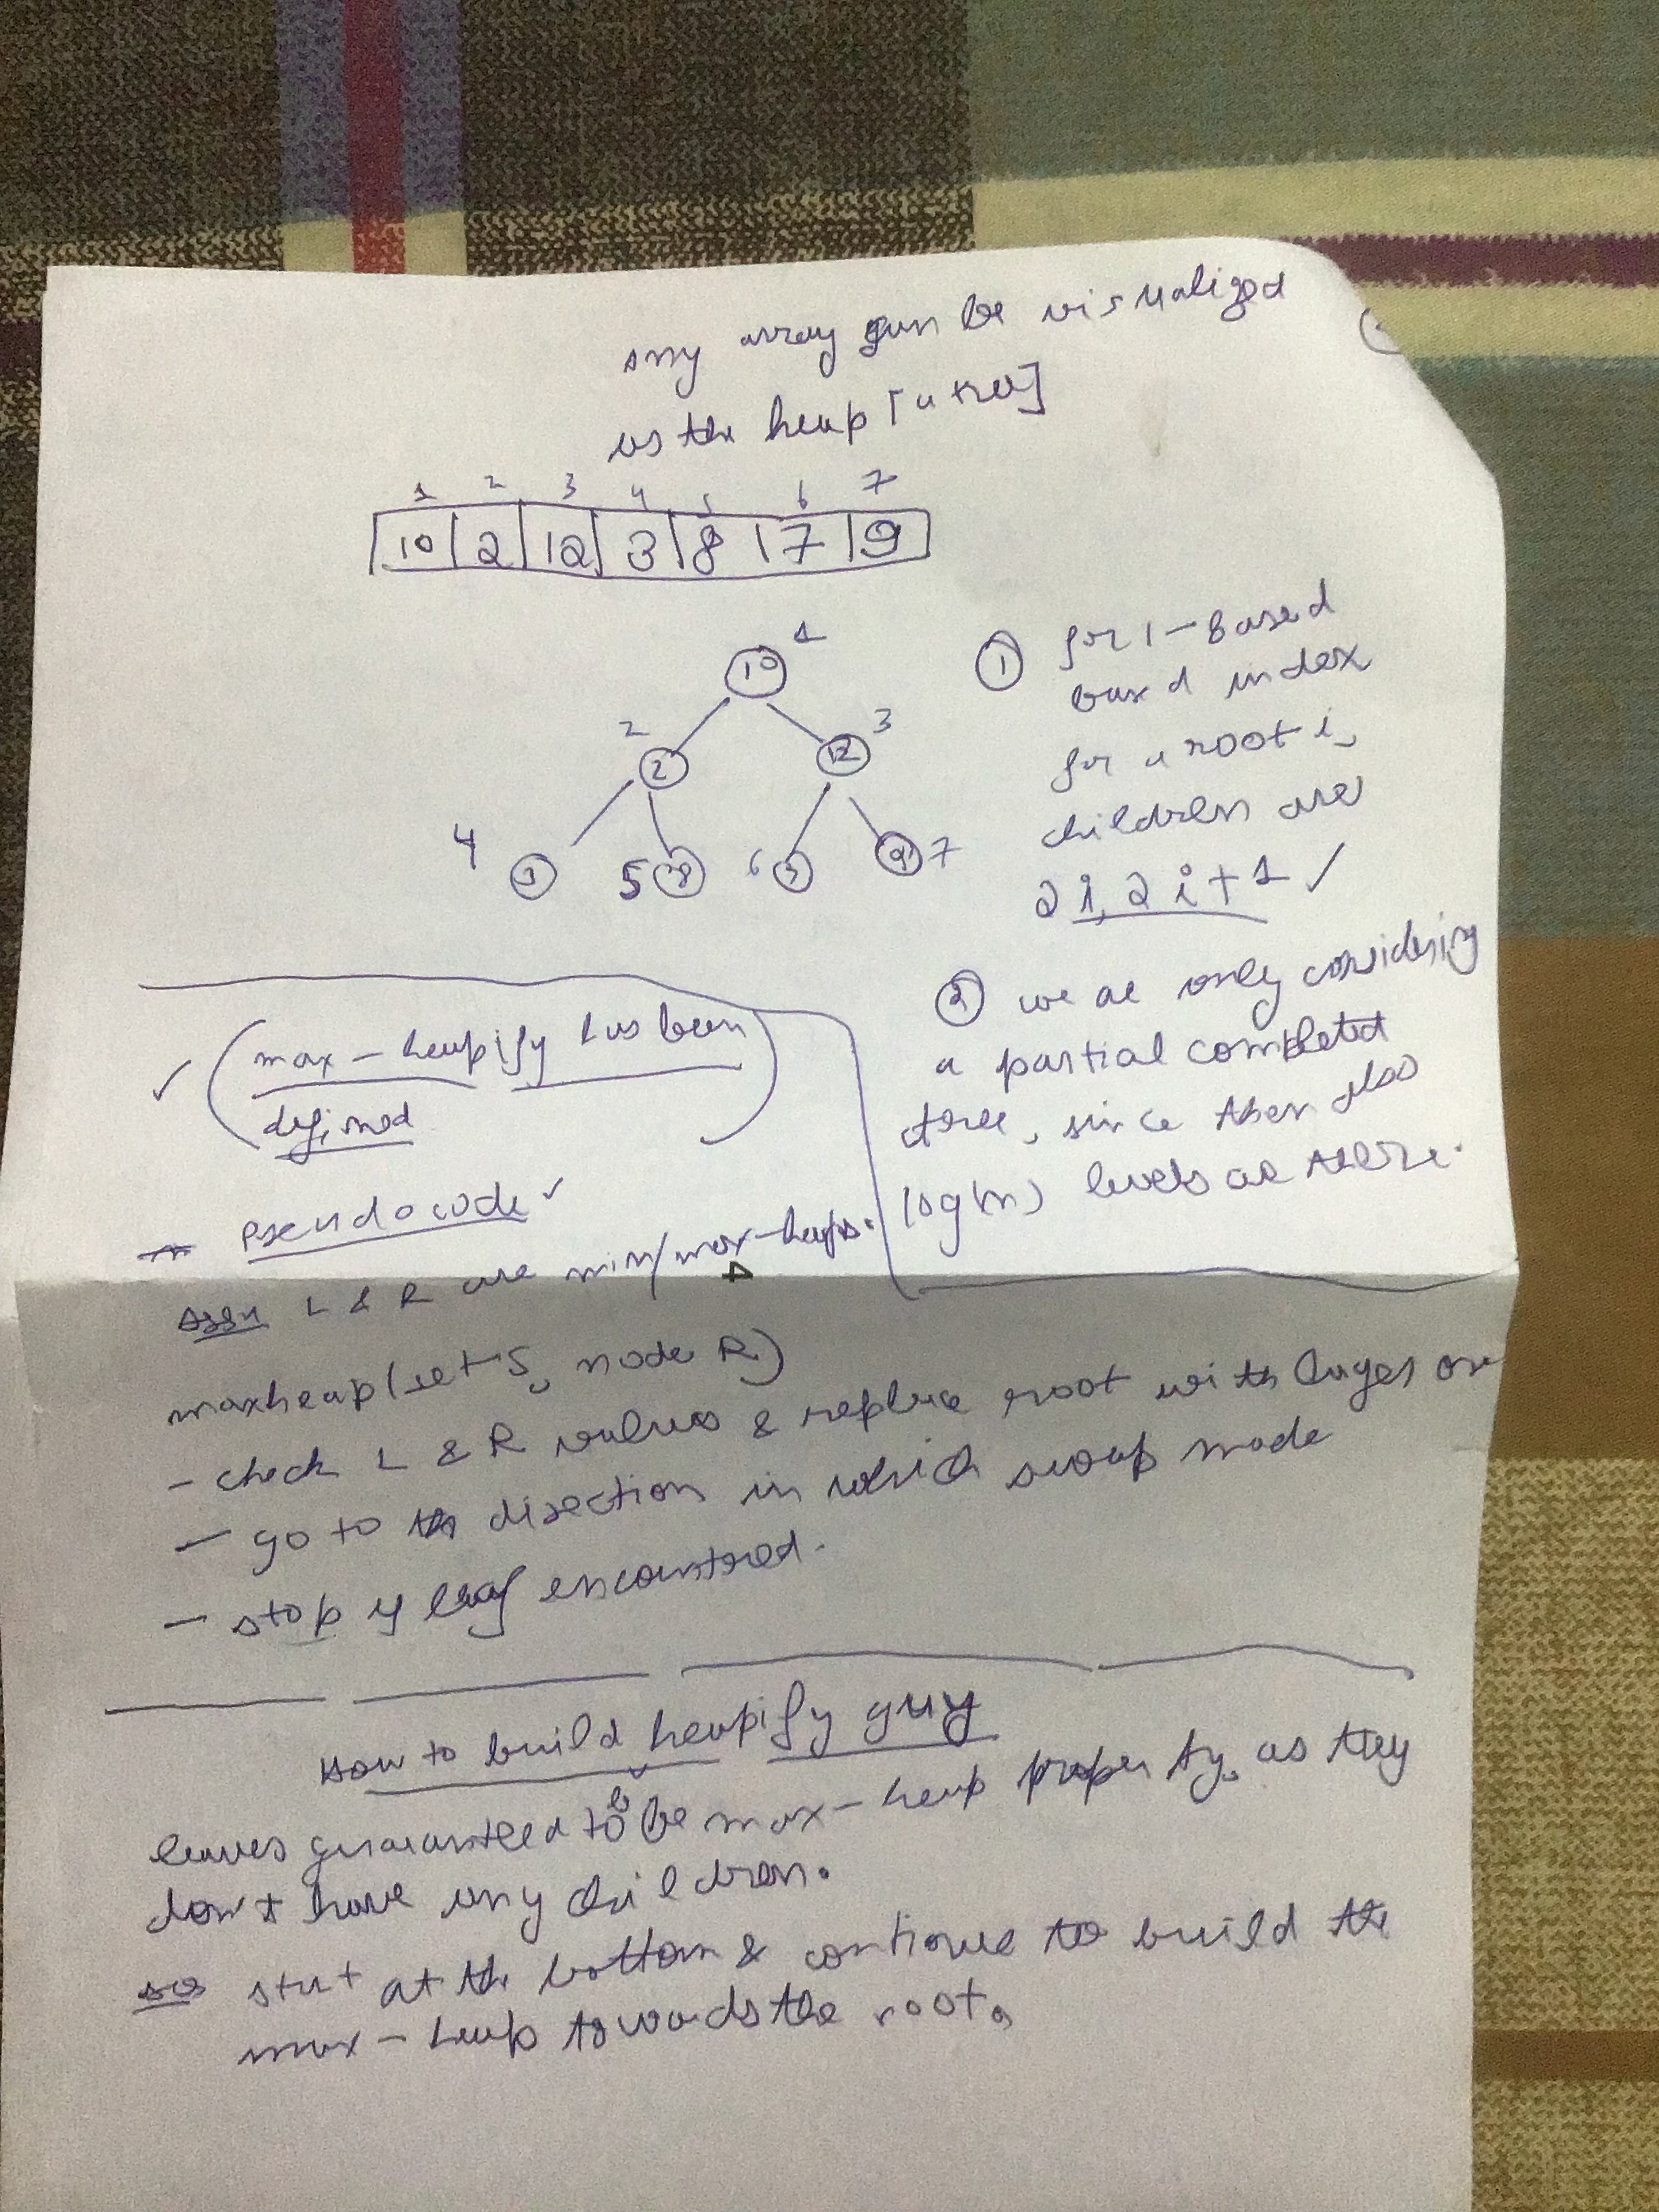 any array can be visualized
as the heap [a tree]
1 2 3 4 5 6 7
10 2 12 3 8 7 9
10 1
2 2 12 3
4 3 5 8 6 7 9 7
① for 1-Based
based index
for a root i,
children are
2i, 2i+1 ✓
② we are only considering
a partial completed
tree, since then also
log(n) levels are there.
✓ (max-heapify has been
defined)
Pseudocode ✓
Assu L & R are min/max-heaps.
maxheap(set S, node R)
- check L & R values & replace root with larger one
- go to the direction in which swap made
- stop if leaf encountered.
How to build heapify guy
leaves guaranteed to be max-heap property, as they
don't have any children.
so start at the bottom & continue to build the
max-heap towards the root.